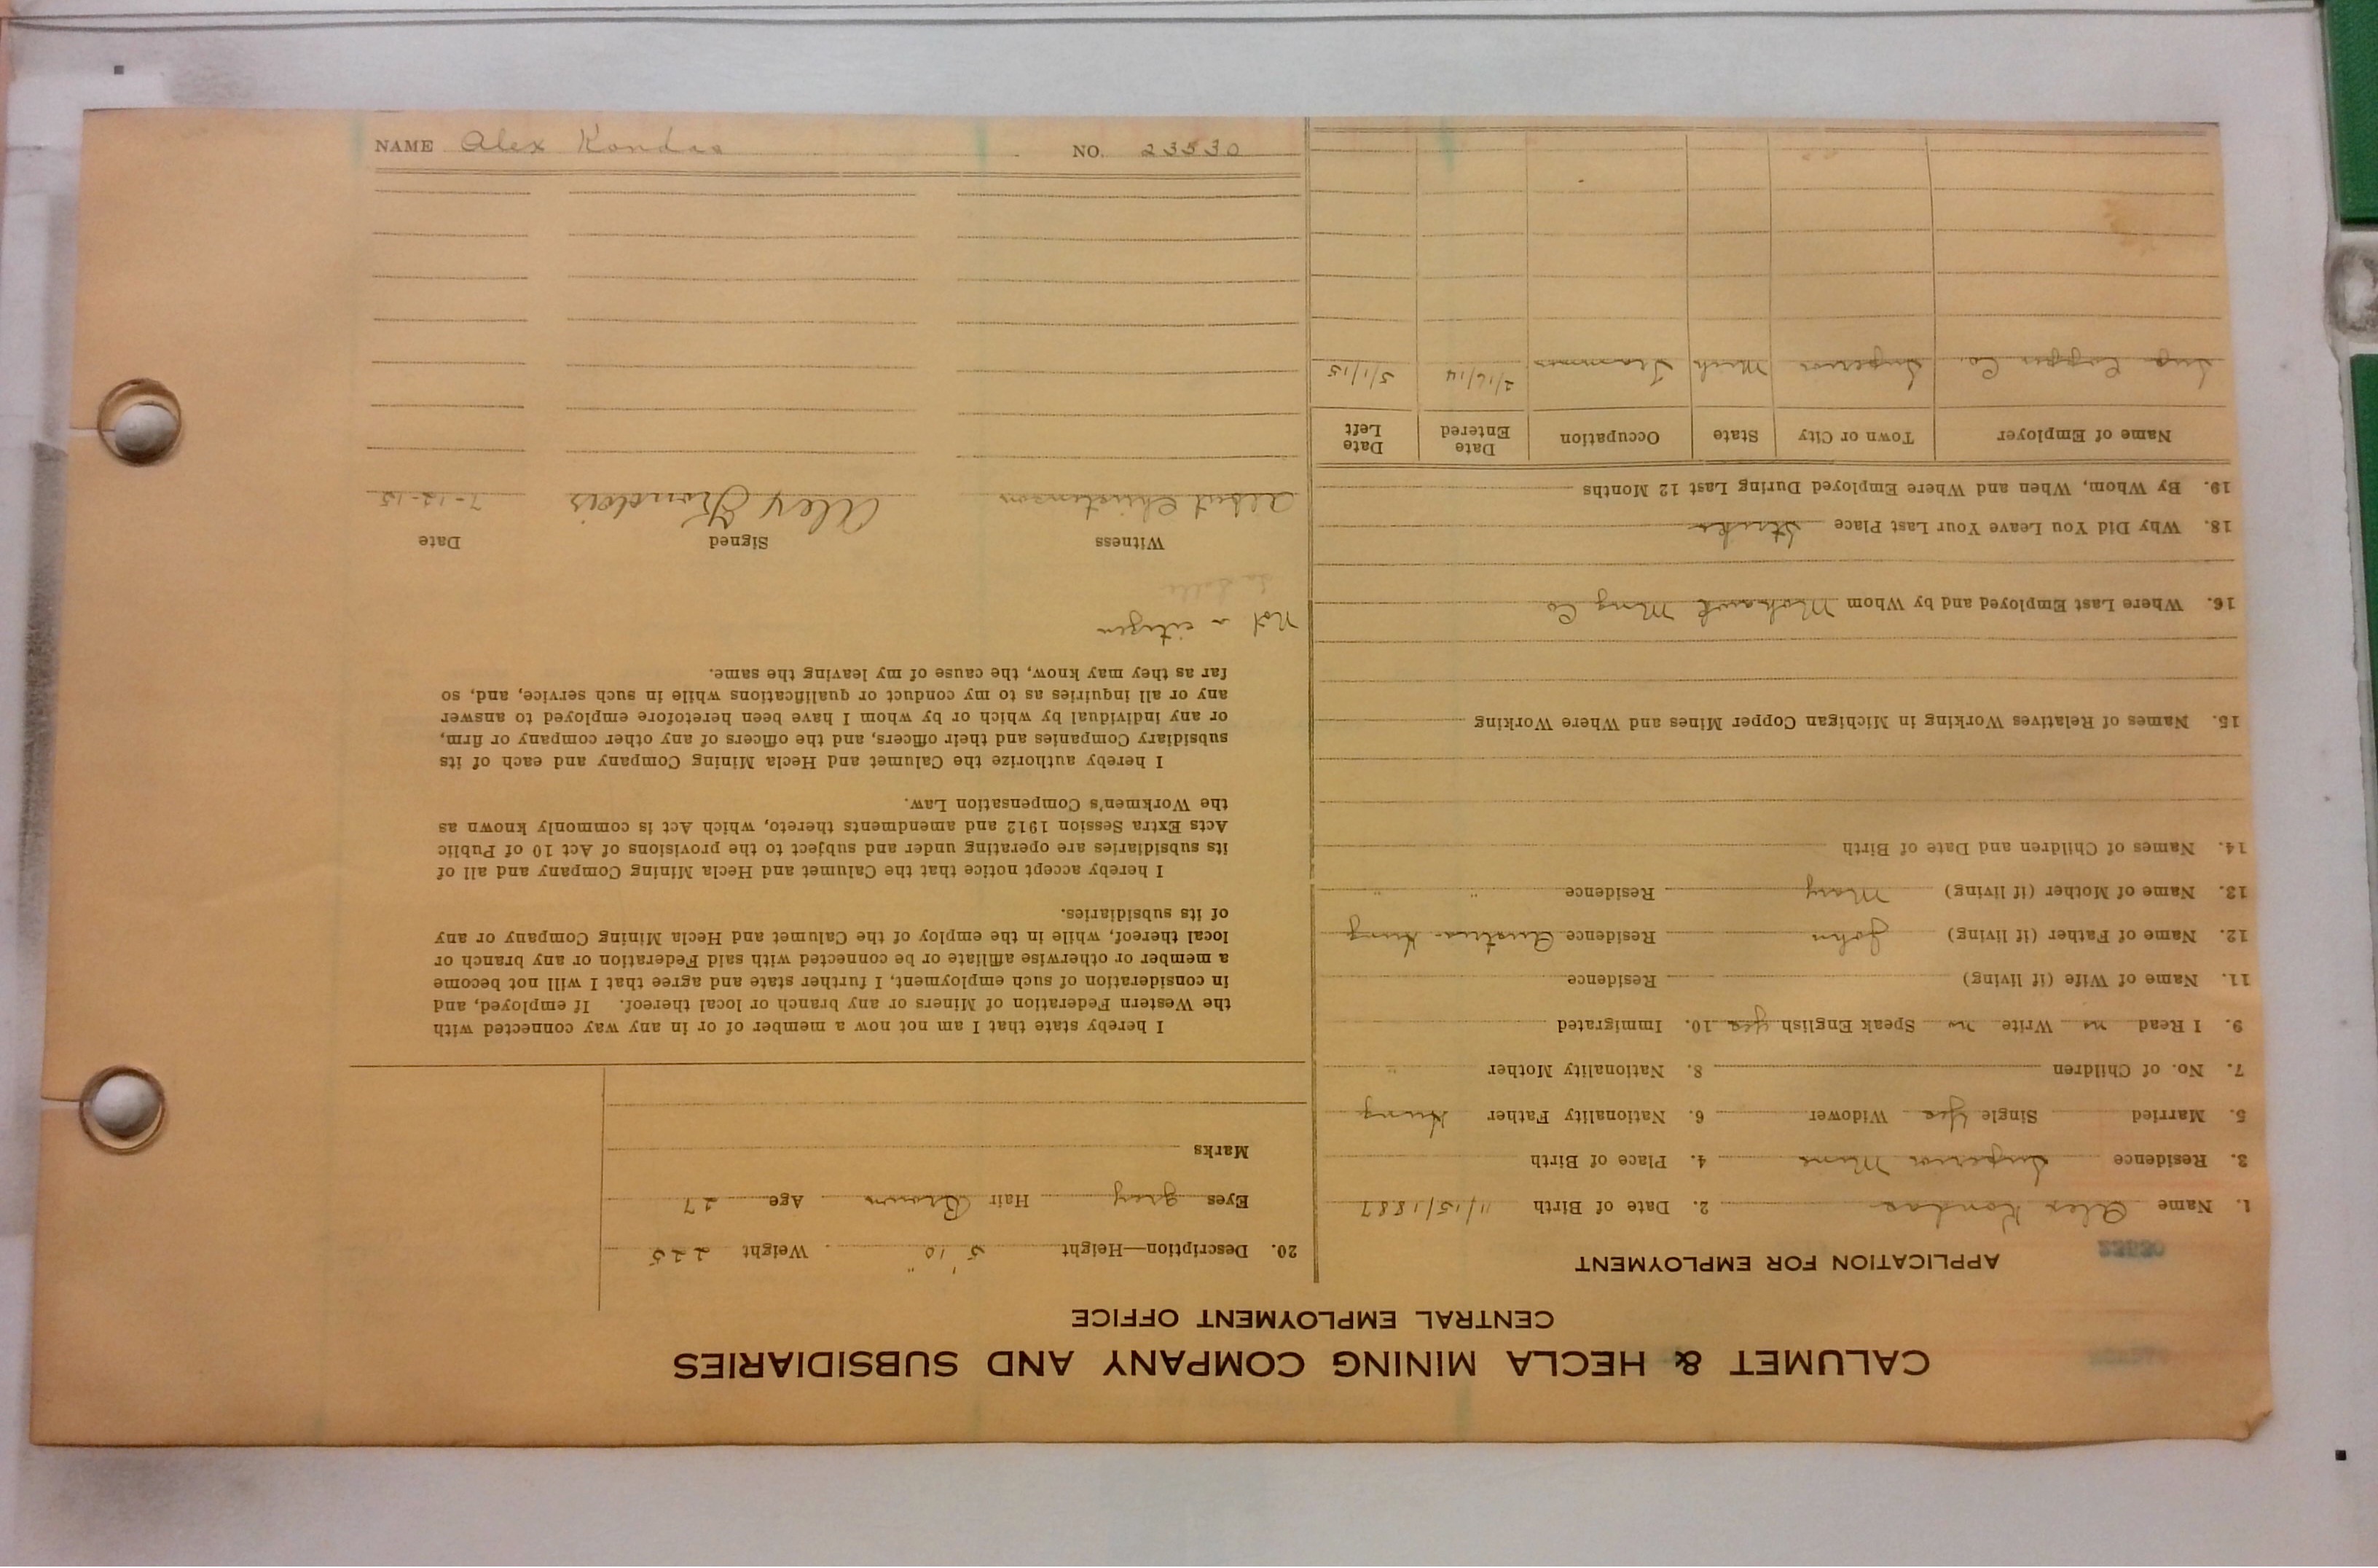 CALUMET & HECLA MINING COMPANY AND SUBSIDIARIES
CENTRAL EMPLOYMENT OFFICE
APPLICATION FOR EMPLOYMENT
1. Name Alex Kondas 2. Date of Birth 11/15/1887
3. Residence Superior Mine 4. Place of Birth
5. Married Single Yes Widower 6. Nationality Father Hung
7. No. of Children 8. Nationality Mother "
9. I Read no Write no Speak English yes 10. Immigrated
11. Name of Wife (if living) Residence
12. Name of Father (if living) John Residence Austria Hung
13. Name of Mother (if living) Mary Residence " "
14. Names of Children and Date of Birth
15. Names of Relatives Working in Michigan Copper Mines and Where Working
16. Where Last Employed and by Whom Mohawk Mng Co
18. Why Did You Leave Your Last Place
19. By Whom, When and Where Employed During Last 12 Months
Name of Employer Town or City State Occupation Date Entered Date Left
Sup Copper Co. Superior Mich Trammer 2/16/14 5/1/15
20. Description—Height 5' 10" Weight 225
Eyes gray Hair Brown Age 27
Marks
I hereby state that I am not now a member of or in any way connected with
the Western Federation of Miners or any branch or local thereof. If employed, and
in consideration of such employment, I further state and agree that I will not become
a member or otherwise affiliate or be connected with said Federation or any branch or
local thereof, while in the employ of the Calumet and Hecla Mining Company or any
of its subsidiaries.
I hereby accept notice that the Calumet and Hecla Mining Company and all of
its subsidiaries are operating under and subject to the provisions of Act 10 of Public
Acts Extra Session 1912 and amendments thereto, which Act is commonly known as
the Workmen's Compensation Law.
I hereby authorize the Calumet and Hecla Mining Company and each of its
subsidiary Companies and their officers, and the officers of any other company or firm,
or any individual by which or by whom I have been heretofore employed to answer
any or all inquiries as to my conduct or qualifications while in such service, and, so
far as they may know, the cause of my leaving the same.
Not a citizen
Witness Signed Date
Albert Christenson Alex Kondas 7-12-15
NAME Alex Kondas NO. 23530